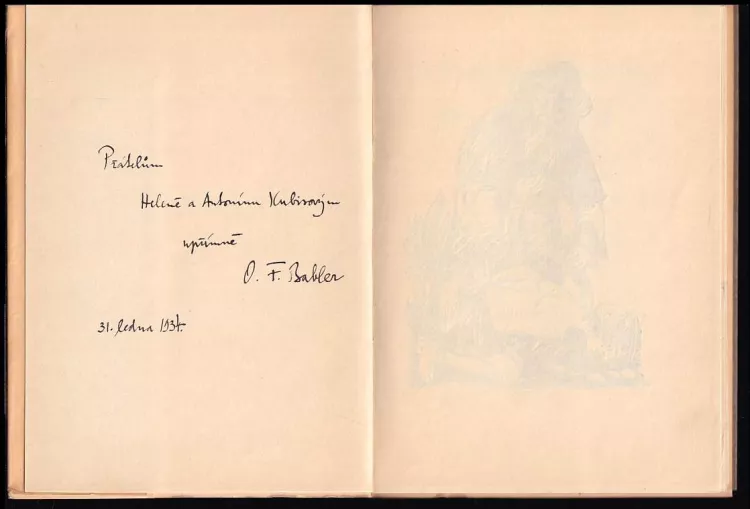 Přátelům
Heleně a Antonínu Kubisovým
upřímně
O. F. Babler
31. ledna 1937.